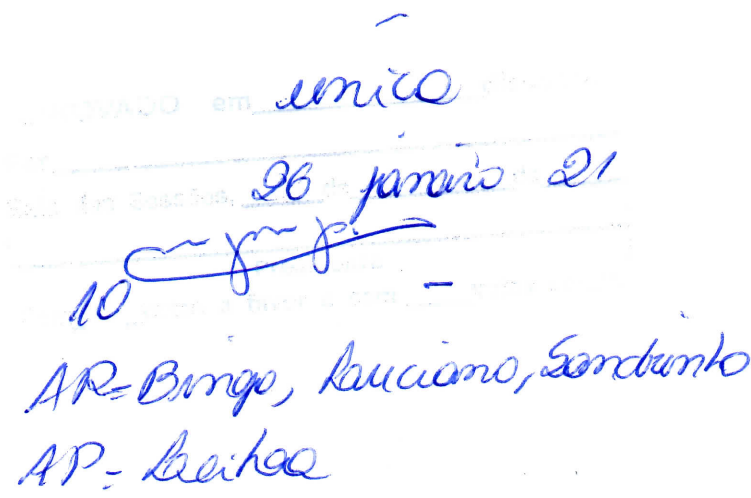 única
26 janeiro 21
10 -
AR=Bingo, Lauciano, Sandrinho
AP-